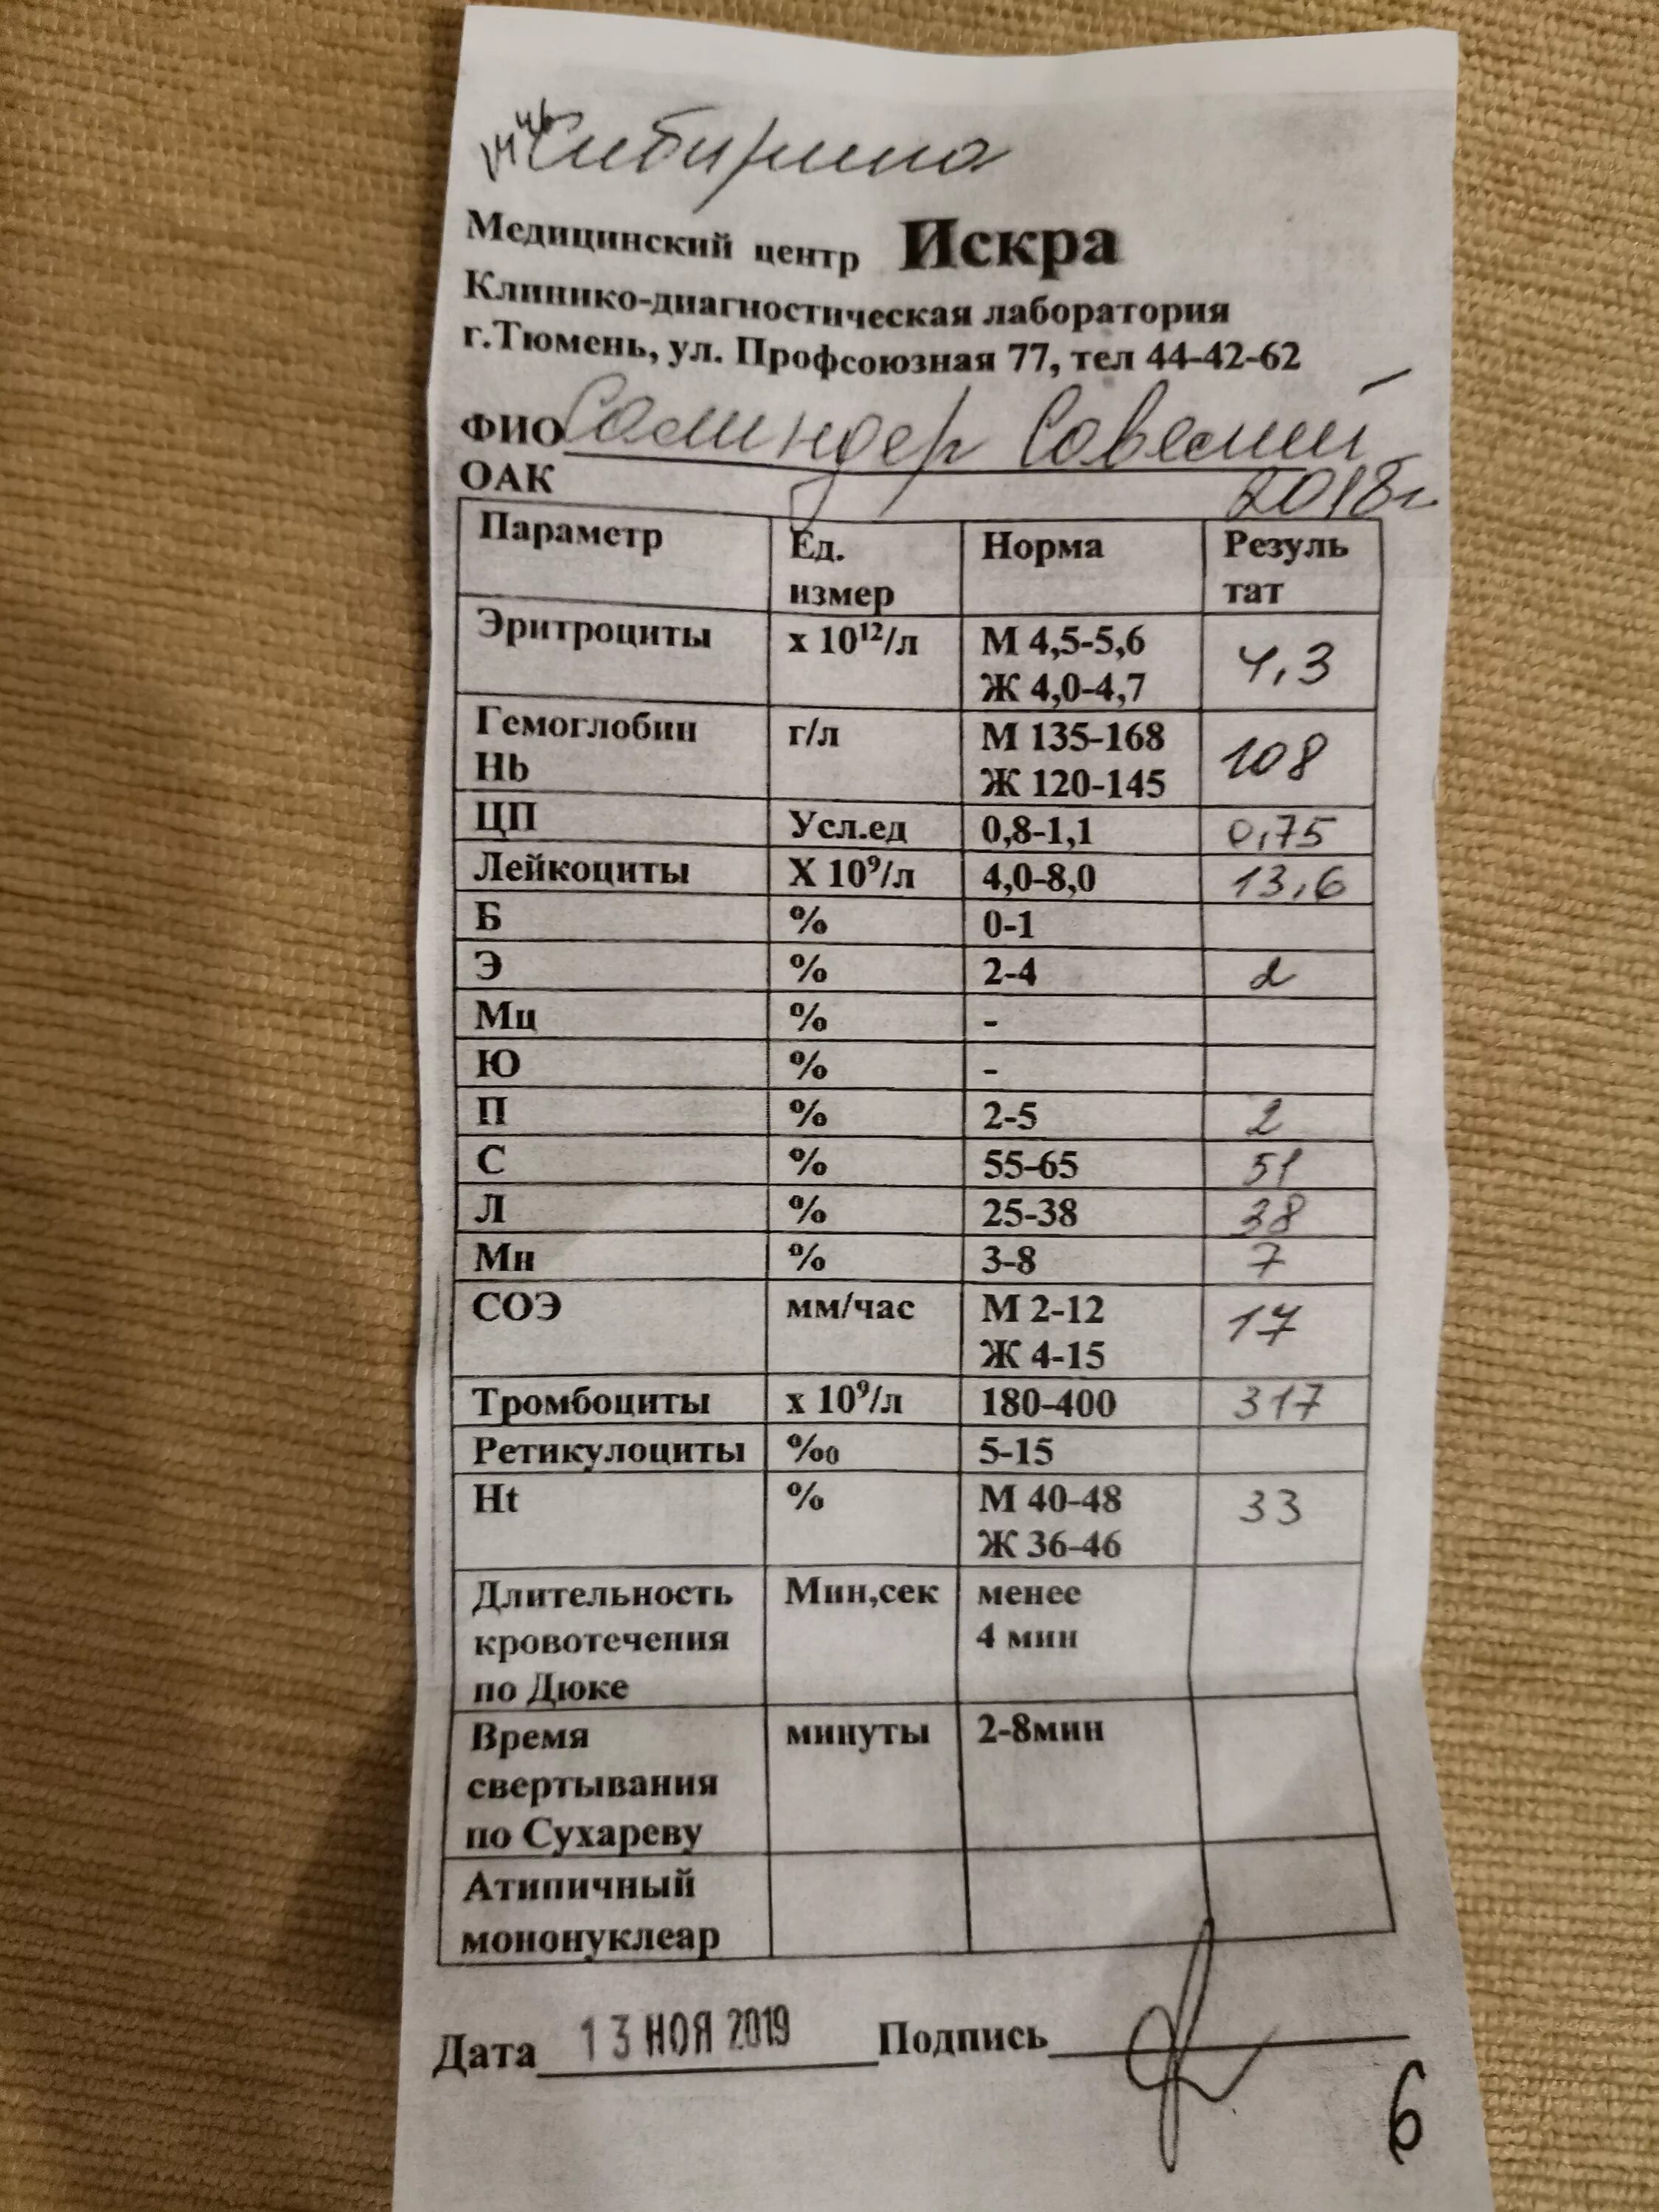 Сибирина
Медицинский центр Искра
Клинико-диагностическая лаборатория
г.Тюмень, ул. Профсоюзная 77, тел 44-42-62
ФИО Салиндер Савелий
ОАК 2018г.
Параметр Ед. измер Норма Резуль тат
Эритроциты х 10¹²/л М 4,5-5,6 Ж 4,0-4,7 4,3
Гемоглобин Hb г/л М 135-168 Ж 120-145 108
ЦП Усл.ед 0,8-1,1 0,75
Лейкоциты Х 10⁹/л 4,0-8,0 13,6
Б % 0-1
Э % 2-4 2
Мц % -
Ю % -
П % 2-5 2
С % 55-65 51
Л % 25-38 38
Мн % 3-8 7
СОЭ мм/час М 2-12 Ж 4-15 17
Тромбоциты х 10⁹/л 180-400 317
Ретикулоциты ‰0 5-15
Ht % М 40-48 Ж 36-46 33
Длительность кровотечения по Дюке Мин,сек менее 4 мин
Время свертывания по Сухареву минуты 2-8мин
Атипичный мононуклеар
Дата 13 НОЯ 2019 Подпись
6